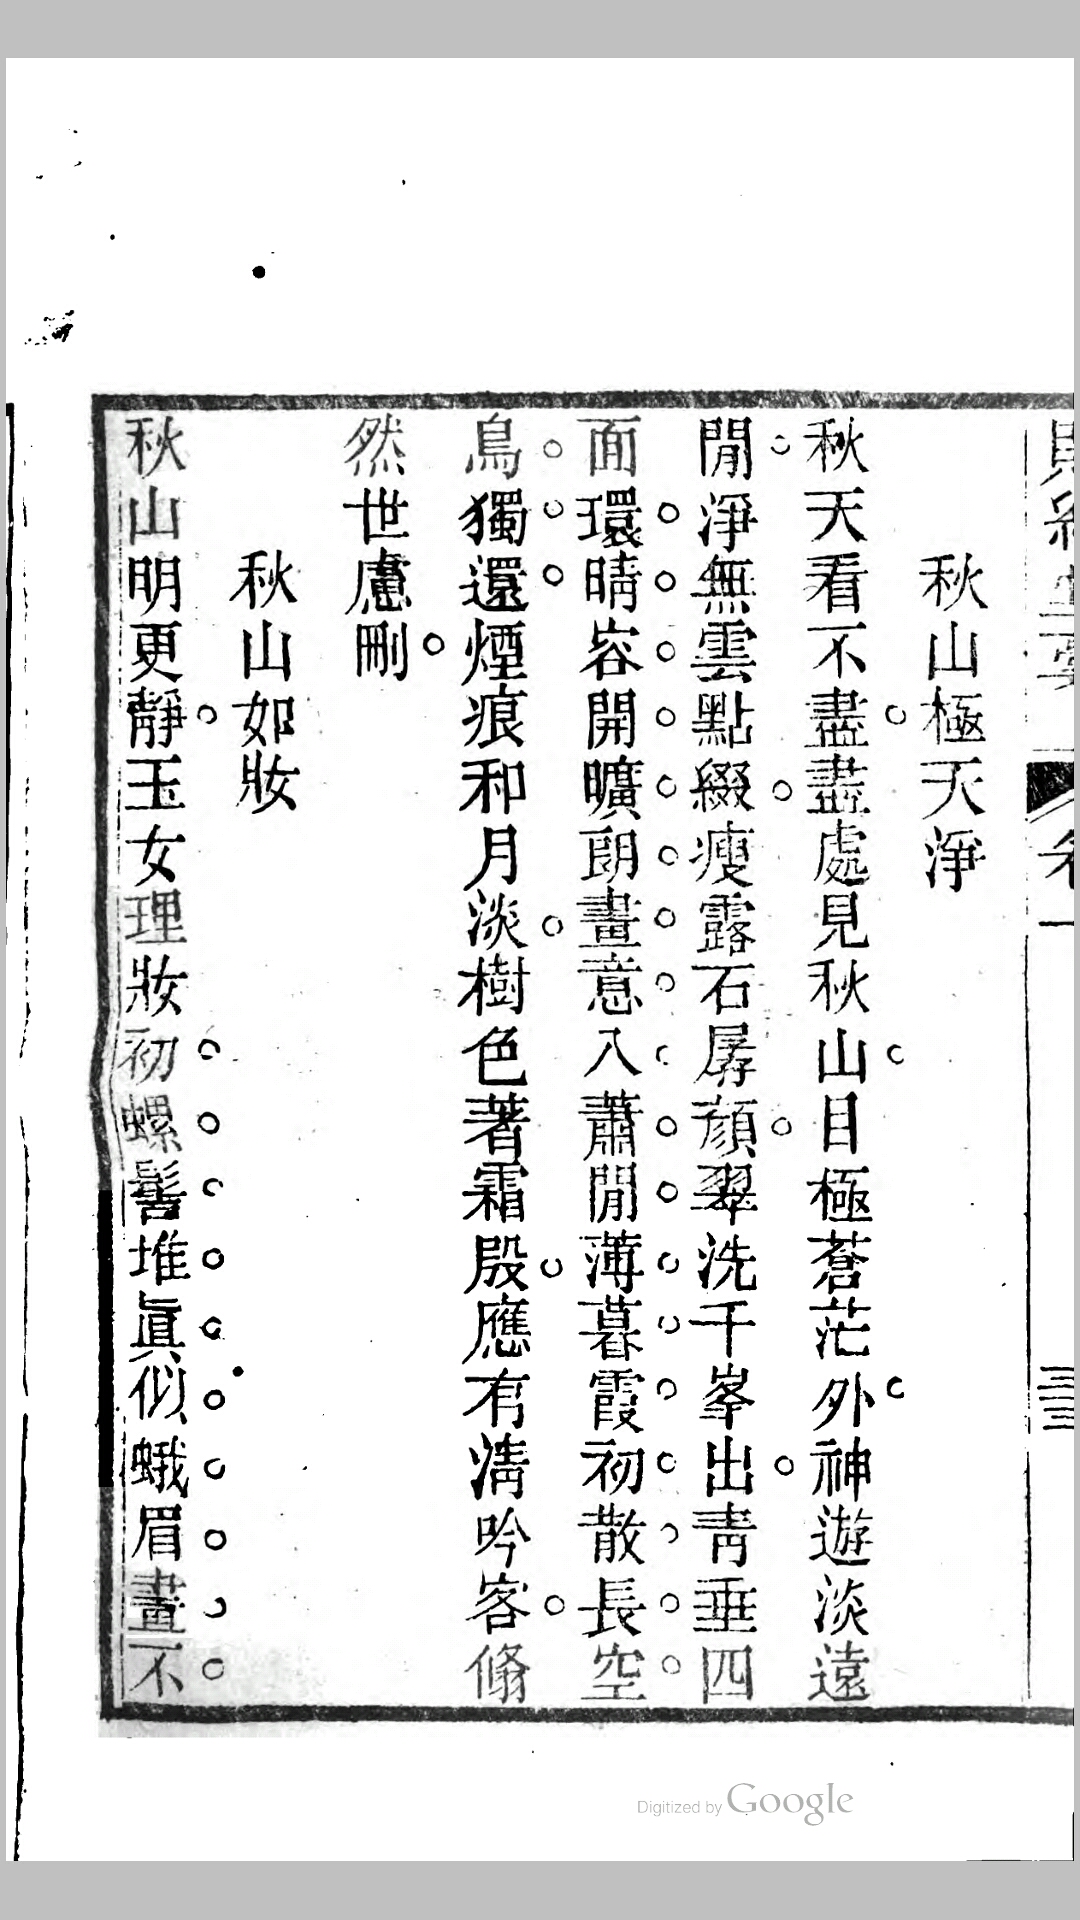 秋山極天淨
秋天看不盡盡處見秋山目極蒼茫外神遊淡遠
閒淨無雲點綴瘦露石孱顔翠洗千峯出靑垂四
面環晴容開曠朗畫意入蕭閒薄暮霞初散長空
鳥獨還煙痕和月淡樹色著霜殷應有淸吟客翛
然世慮刪
秋山如妝
秋山明更靜玉女理妝初螺髻堆眞似蛾眉畫不
Digitized by Google